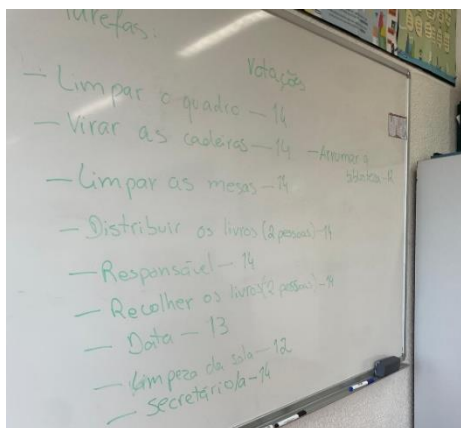 Tarefas:
Votações
— Limpar o quadro — 14
— Virar as cadeiras — 14
— Arrumar a
— Limpar as mesas — 14
— Distribuir os livros (2 pessoas) — 14
— Responsável — 14
— Recolher os livros (2 pessoas) —
— Data — 13
— Limpeza da sala — 12
— Secretário/a — 14